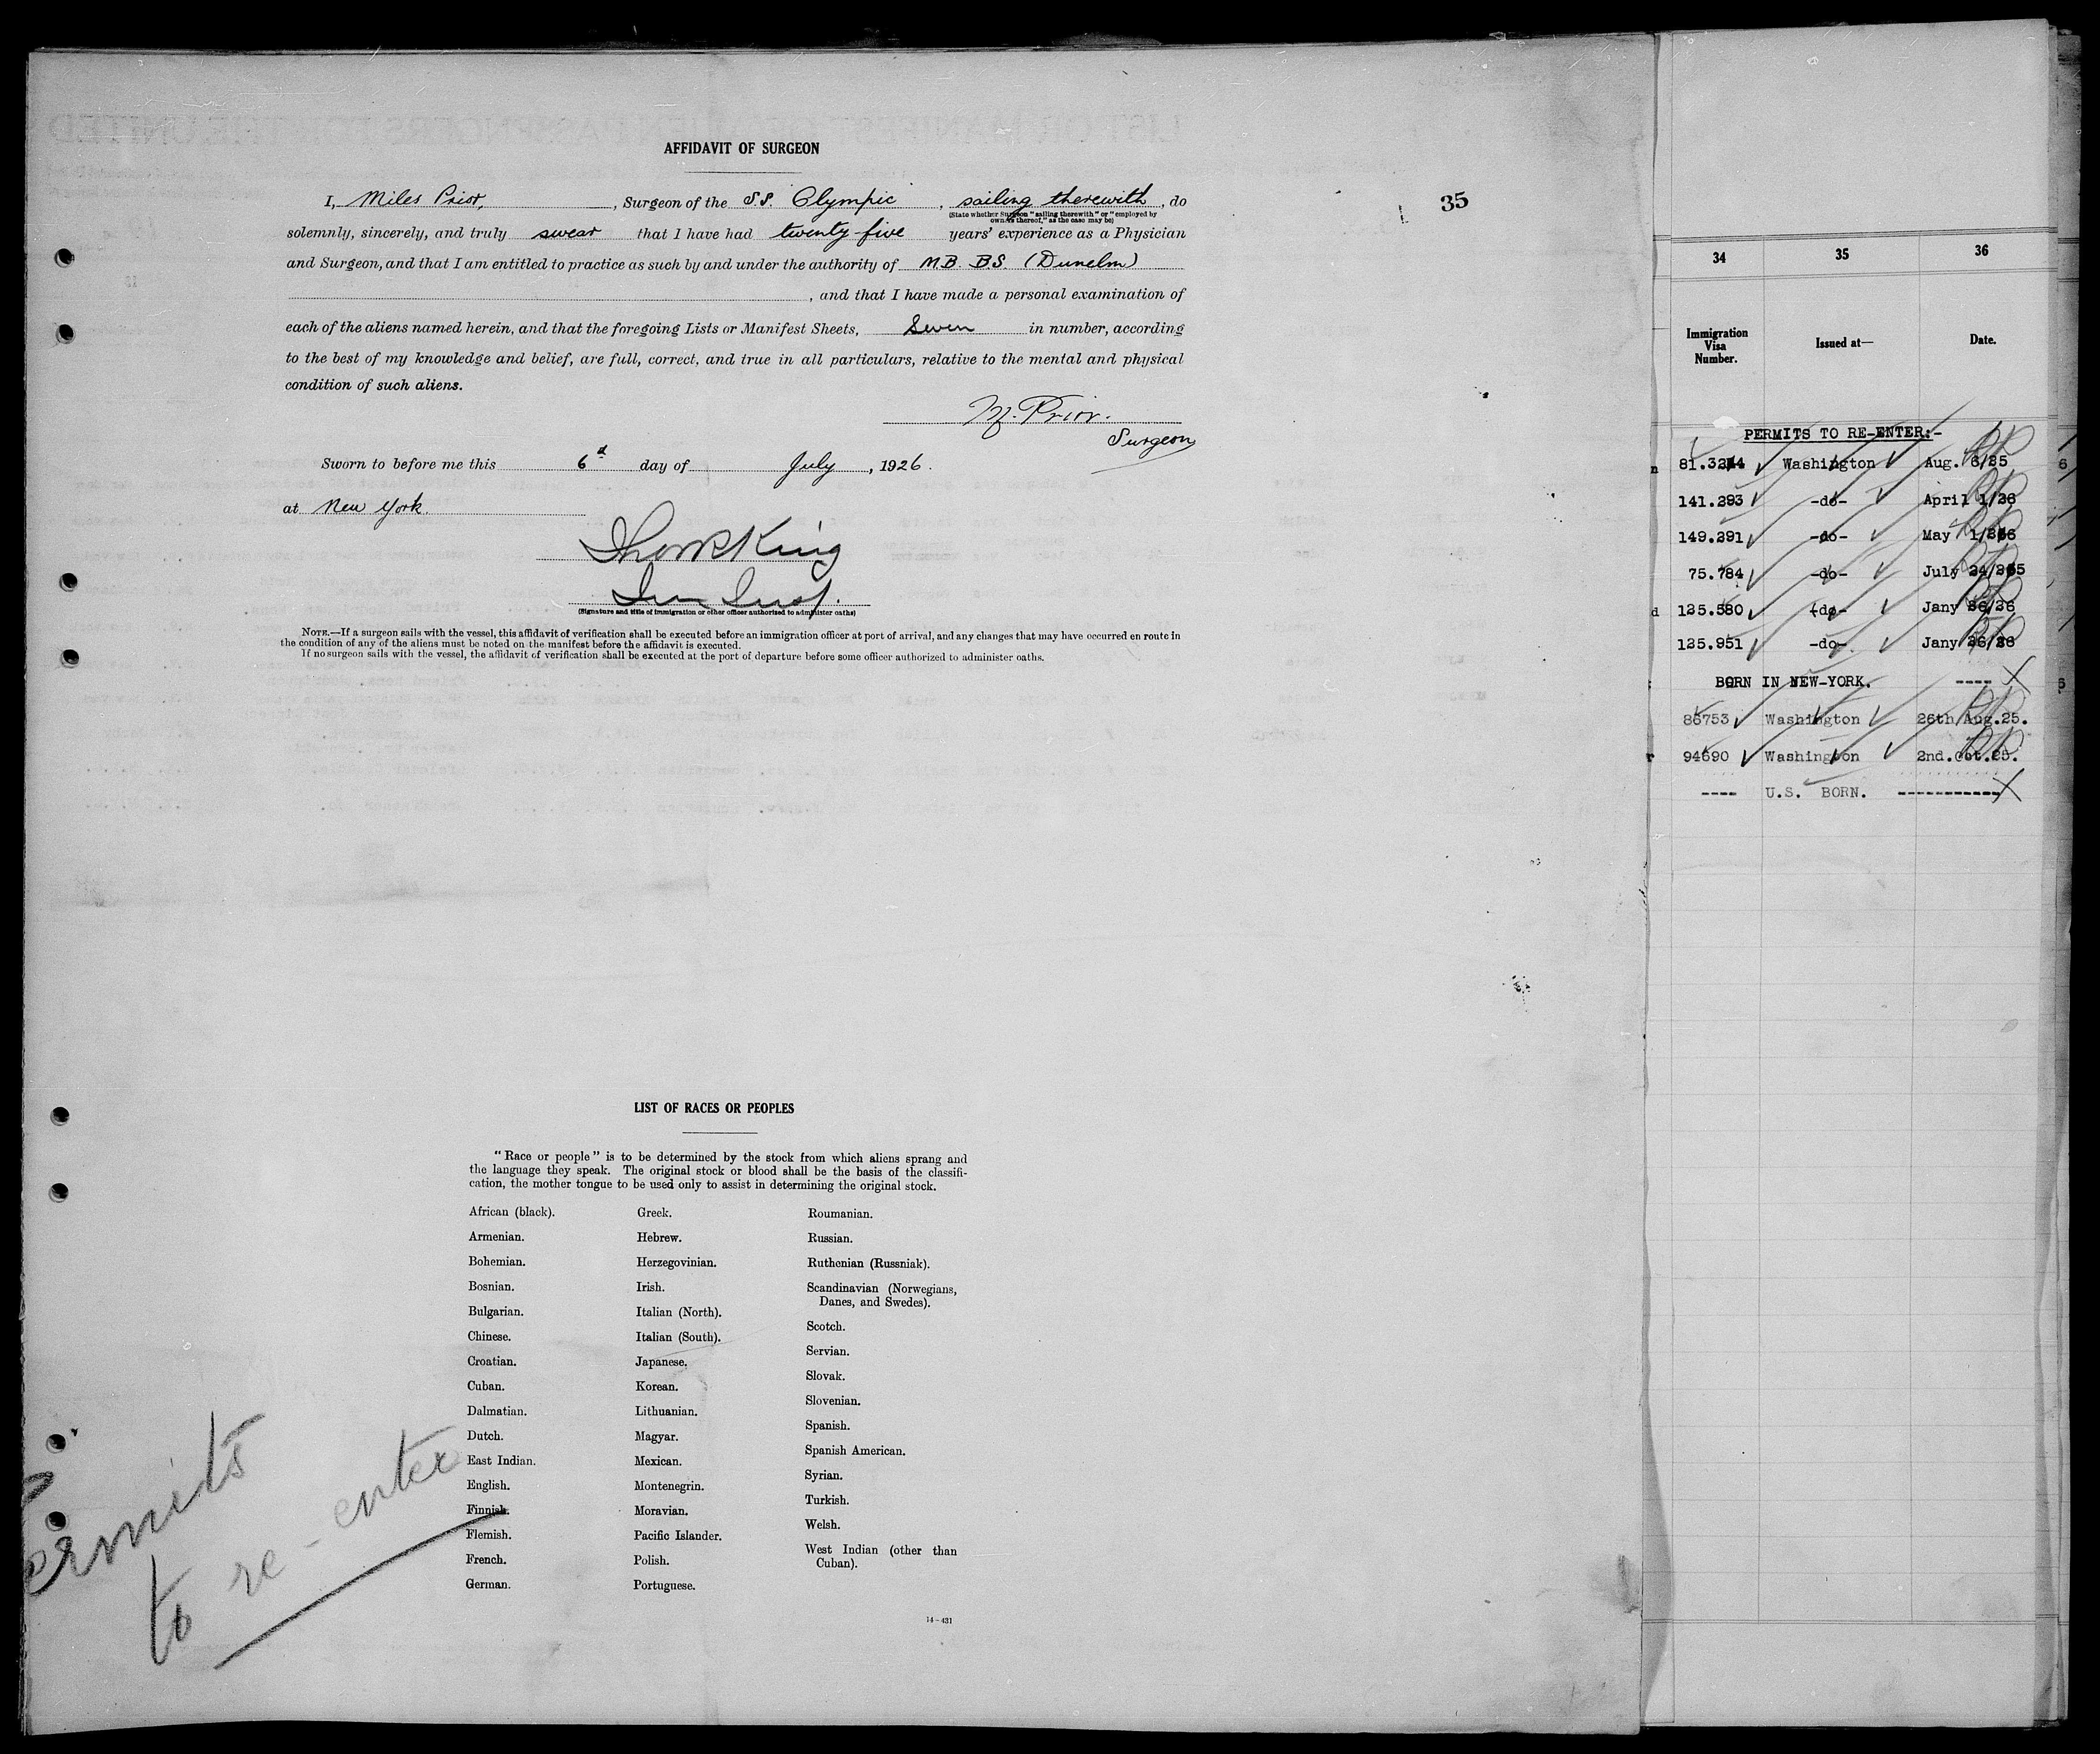 AFFIDAVIT OF SURGEON
I, Miles Prior, , Surgeon of the S.S. Olympic , sailing therewith , do
(State whether Surgeon "sailing therewith" or "employed by
owners thereof," as the case may be)
solemnly, sincerely, and truly swear that I have had twenty-five years' experience as a Physician
and Surgeon, and that I am entitled to practice as such by and under the authority of M.B. B.S. (Dunelm)
, and that I have made a personal examination of
each of the aliens named herein, and that the foregoing Lists or Manifest Sheets, Seven in number, according
to the best of my knowledge and belief, are full, correct, and true in all particulars, relative to the mental and physical
condition of such aliens.
M. Prior.
Surgeon
Sworn to before me this 6 day of July , 1926.
at New York.
King
(Signature and title of immigration or other officer authorized to administer oaths)
NOTE.—If a surgeon sails with the vessel, this affidavit of verification shall be executed before an immigration officer at port of arrival, and any changes that may have occurred en route in
the condition of any of the aliens must be noted on the manifest before the affidavit is executed.
If no surgeon sails with the vessel, the affidavit of verification shall be executed at the port of departure before some officer authorized to administer oaths.
35
LIST OF RACES OR PEOPLES
"Race or people" is to be determined by the stock from which aliens sprang and
the language they speak. The original stock or blood shall be the basis of the classifi-
cation, the mother tongue to be used only to assist in determining the original stock.
African (black).
Armenian.
Bohemian.
Bosnian.
Bulgarian.
Chinese.
Croatian.
Cuban.
Dalmatian.
Dutch.
East Indian.
English.
Finnish.
Flemish.
French.
German.
Greek.
Hebrew.
Herzegovinian.
Irish.
Italian (North).
Italian (South).
Japanese.
Korean.
Lithuanian.
Magyar.
Mexican.
Montenegrin.
Moravian.
Pacific Islander.
Polish.
Portuguese.
Roumanian.
Russian.
Ruthenian (Russniak).
Scandinavian (Norwegians,
Danes, and Swedes).
Scotch.
Servian.
Slovak.
Slovenian.
Spanish.
Spanish American.
Syrian.
Turkish.
Welsh.
West Indian (other than
Cuban).
14-431
ermits
to re-enter
34 35 36
Immigration
Visa
Number.
Issued at—
Date.
PERMITS TO RE-ENTER:-
Washington Aug. 6/25
141.293 -do- April 1/26
149.291 -do- May 1/26
75.784 -do- July
125.580 -do- Jany 26/26
125.951 -do- Jany 26/26
BORN IN NEW-YORK. ----
86753 Washington 26th Aug.25.
94690 Washington 2nd.Oct.25.
---- U.S. BORN. -----------